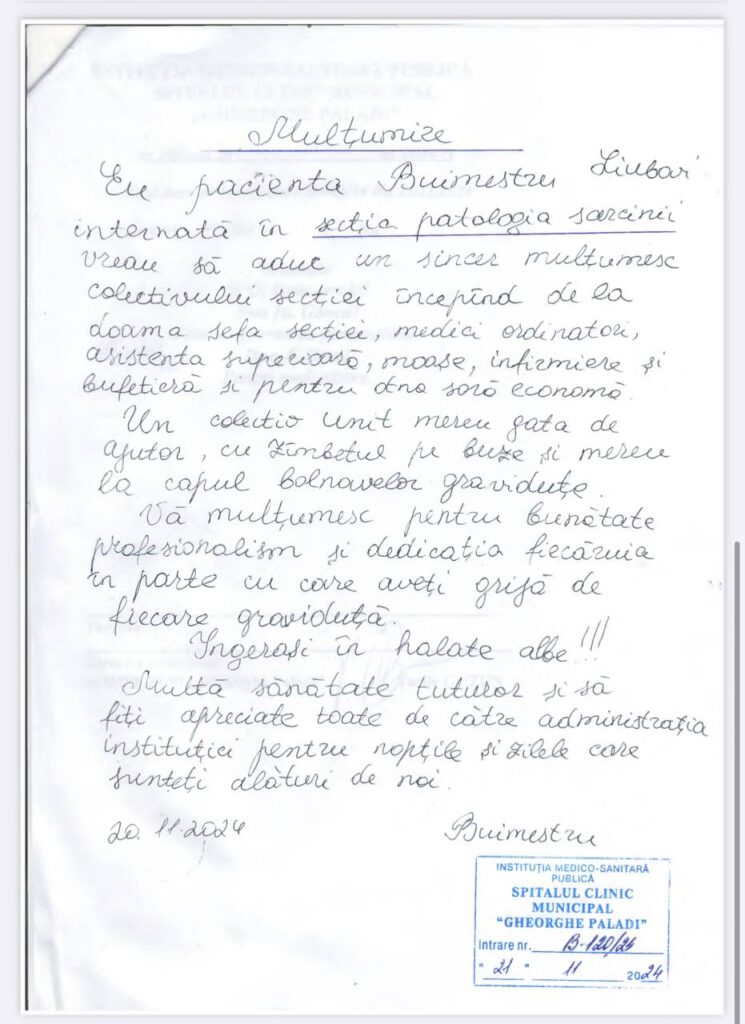 Mulțumire
Eu pacienta Buimestru Liubari
internată în secția patologia sarcinii
vreau să aduc un sincer mulțumesc
colectivului secției începînd de la
doama șefa secției, medici ordinatori,
asistenta superioară, moașe, infirmiere și
bufetieră și pentru d-na soră economă.
Un colectiv unit mereu gata de
ajutor, cu zîmbetul pe buze și mereu
la capul bolnavelor graviduțe.
Vă mulțumesc pentru bunătate
profesionalism și dedicația fiecăruia
în parte cu care aveți grijă de
fiecare graviduță.
Îngerași în halate albe!!!
Multă sănătate tuturor și să
fiți apreciate toate de către administrația
instituției pentru nopțile și zilele care
sunteți alături de noi.
20.11.2024 Buimestru
INSTITUȚIA MEDICO-SANITARĂ
PUBLICĂ
SPITALUL CLINIC
MUNICIPAL
"GHEORGHE PALADI"
Intrare nr. B-120/24
"21" 11 2024